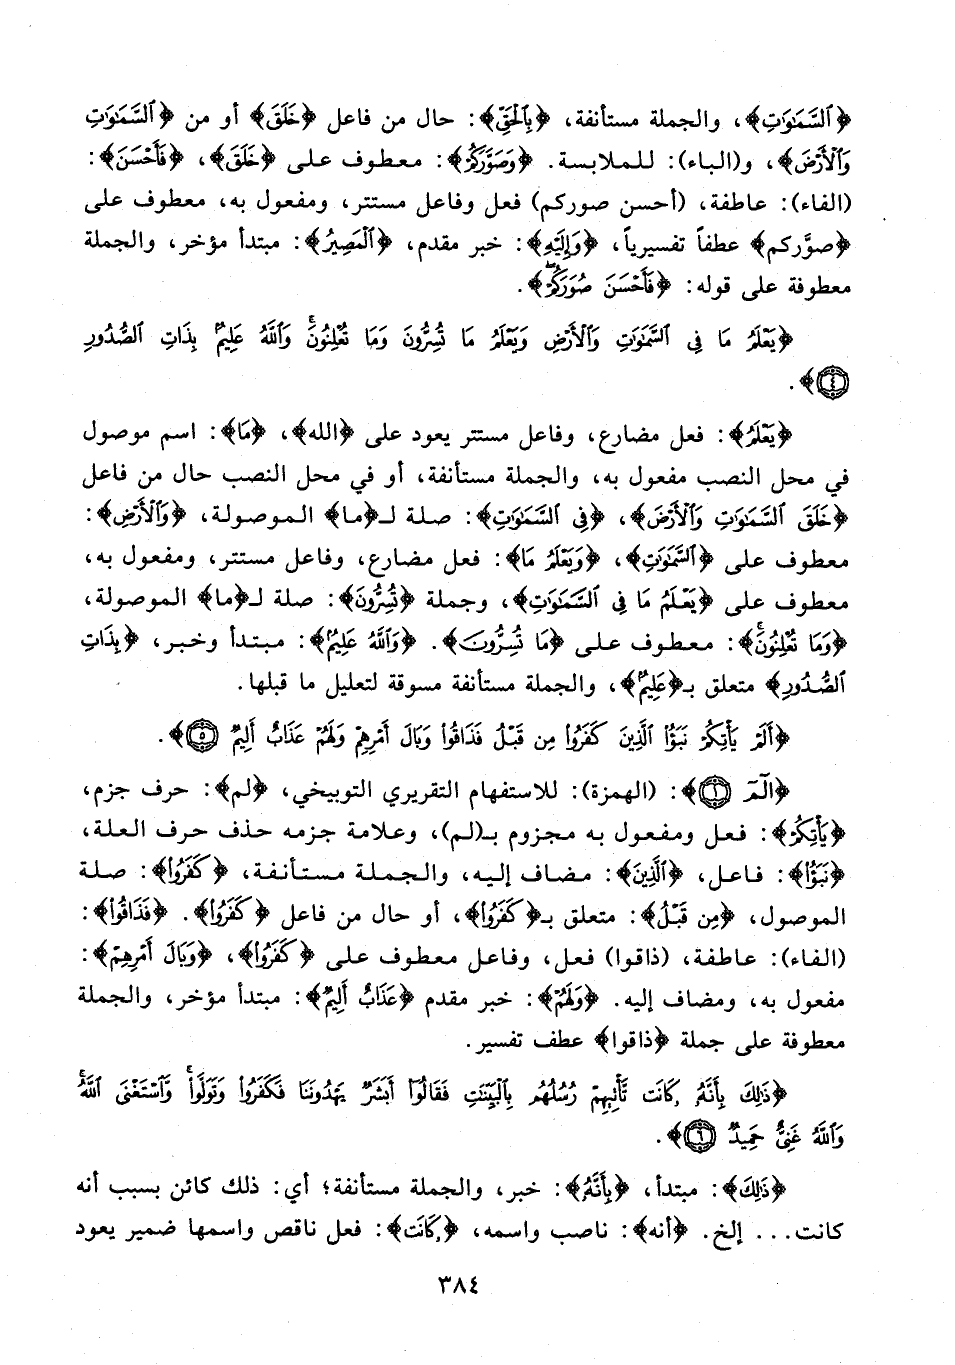 ﴿السَّمَوَتِ﴾، والجملة مستأنفة، ﴿بِالْحَقِّ﴾: حال من فاعل ﴿خَلَقَ﴾ أو من ﴿السَّمَوَتِ
وَالْأَرْضَ﴾، و(الباء): للملابسة. ﴿وَصَوَّرَكُمْ﴾: معطوف على ﴿خَلَقَ﴾، ﴿فَأَحْسَنَ﴾:
(الفاء): عاطفة، (أحسن صوركم) فعل وفاعل مستتر، ومفعول به، معطوف على
﴿صوَّركم﴾ عطفاً تفسيرياً، ﴿وَإِلَيْهِ﴾: خبر مقدم، ﴿الْمَصِيرُ﴾: مبتدأ مؤخر، والجملة
معطوفة على قوله: ﴿فَأَحْسَنَ صُوَرَكُمْ﴾.
﴿يَعْلَمُ مَا فِي السَّمَوَتِ وَالْأَرْضِ وَيَعْلَمُ مَا تُسِرُّونَ وَمَا تُعْلِنُونَ وَاللَّهُ عَلِيمٌ بِذَاتِ الصُّدُورِ
(٤)﴾.
﴿يَعْلَمُ﴾: فعل مضارع، وفاعل مستتر يعود على ﴿الله﴾، ﴿مَا﴾: اسم موصول
في محل النصب مفعول به، والجملة مستأنفة، أو في محل النصب حال من فاعل
﴿خَلَقَ السَّمَوَتِ وَالْأَرْضَ﴾، ﴿فِي السَّمَوَتِ﴾: صلة لـ﴿ما﴾ الموصولة، ﴿وَالْأَرْضِ﴾:
معطوف على ﴿السَّمَوَتِ﴾، ﴿وَيَعْلَمُ مَا﴾: فعل مضارع، وفاعل مستتر، ومفعول به،
معطوف على ﴿يَعْلَمُ مَا فِي السَّمَوَتِ﴾، وجملة ﴿تُسِرُّونَ﴾: صلة لـ﴿ما﴾ الموصولة،
﴿وَمَا تُعْلِنُونَ﴾: معطوف على ﴿مَا تُسِرُّونَ﴾. ﴿وَاللَّهُ عَلِيمٌ﴾: مبتدأ وخبر، ﴿بِذَاتِ
الصُّدُورِ﴾ متعلق بـ﴿عَلِيمٌ﴾، والجملة مستأنفة مسوقة لتعليل ما قبلها.
﴿أَلَمْ يَأْتِكُمْ نَبَؤُا الَّذِينَ كَفَرُوا مِن قَبْلُ فَذَاقُوا وَبَالَ أَمْرِهِمْ وَلَهُمْ عَذَابٌ أَلِيمٌ (٥)﴾.
﴿الٓمٓ (١)﴾: (الهمزة): للاستفهام التقريري التوبيخي، ﴿لم﴾: حرف جزم،
﴿يَأْتِكُمْ﴾: فعل ومفعول به مجزوم بـ(لم)، وعلامة جزمه حذف حرف العلة،
﴿نَبَؤُا﴾: فاعل، ﴿الَّذِينَ﴾: مضاف إليه، والجملة مستأنفة، ﴿كَفَرُوا﴾: صلة
الموصول، ﴿مِن قَبْلُ﴾: متعلق بـ﴿كَفَرُوا﴾، أو حال من فاعل ﴿كَفَرُوا﴾. ﴿فَذَاقُوا﴾:
(الفاء): عاطفة، (ذاقوا) فعل، وفاعل معطوف على ﴿كَفَرُوا﴾، ﴿وَبَالَ أَمْرِهِمْ﴾:
مفعول به، ومضاف إليه. ﴿وَلَهُمْ﴾: خبر مقدم ﴿عَذَابٌ أَلِيمٌ﴾: مبتدأ مؤخر، والجملة
معطوفة على جملة ﴿ذاقوا﴾ عطف تفسير.
﴿ذَلِكَ بِأَنَّهُ كَانَت تَّأْتِيهِمْ رُسُلُهُم بِالْبَيِّنَتِ فَقَالُوا أَبَشَرٌ يَهْدُونَنَا فَكَفَرُوا وَتَوَلَّوا وَّاسْتَغْنَى اللَّهُ
وَاللَّهُ غَنِيٌّ حَمِيدٌ (٦)﴾.
﴿ذَلِكَ﴾: مبتدأ، ﴿بِأَنَّهُ﴾: خبر، والجملة مستأنفة؛ أي: ذلك كائن بسبب أنه
كانت... إلخ. ﴿أنه﴾: ناصب واسمه، ﴿كَانَت﴾: فعل ناقص واسمها ضمير يعود
٣٨٤